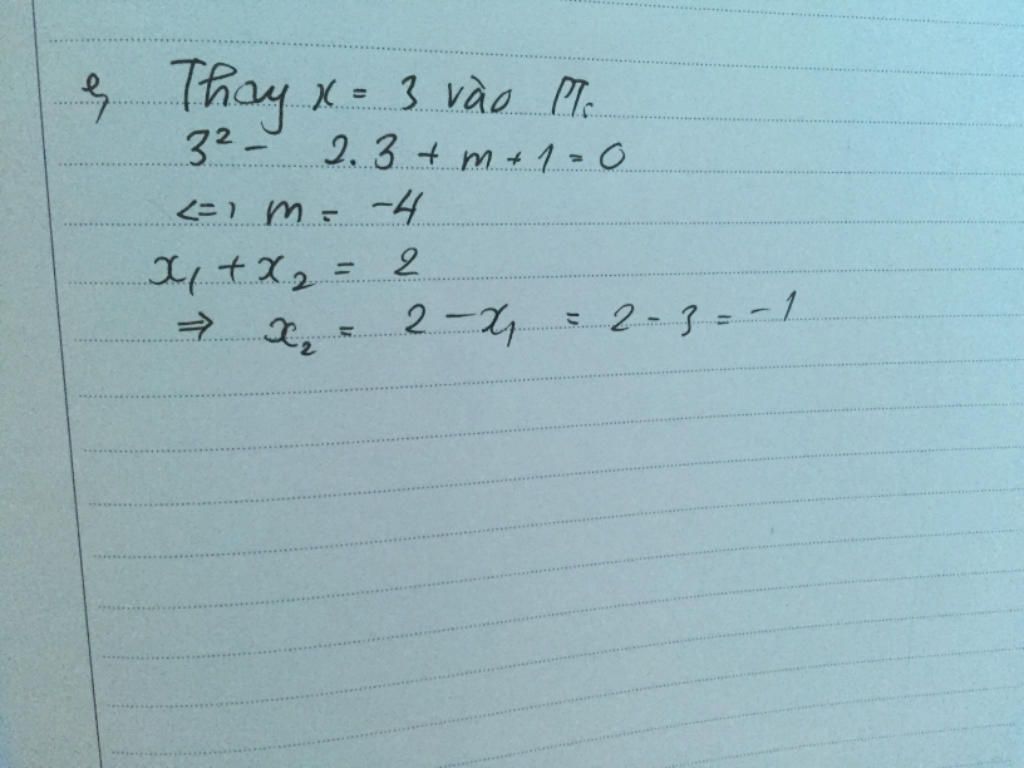 e, Thay x = 3 vào PT.
3² - 2.3 + m + 1 = 0
<=> m = -4
x₁ + x₂ = 2
⇒ x₂ = 2 - x₁ = 2 - 3 = -1